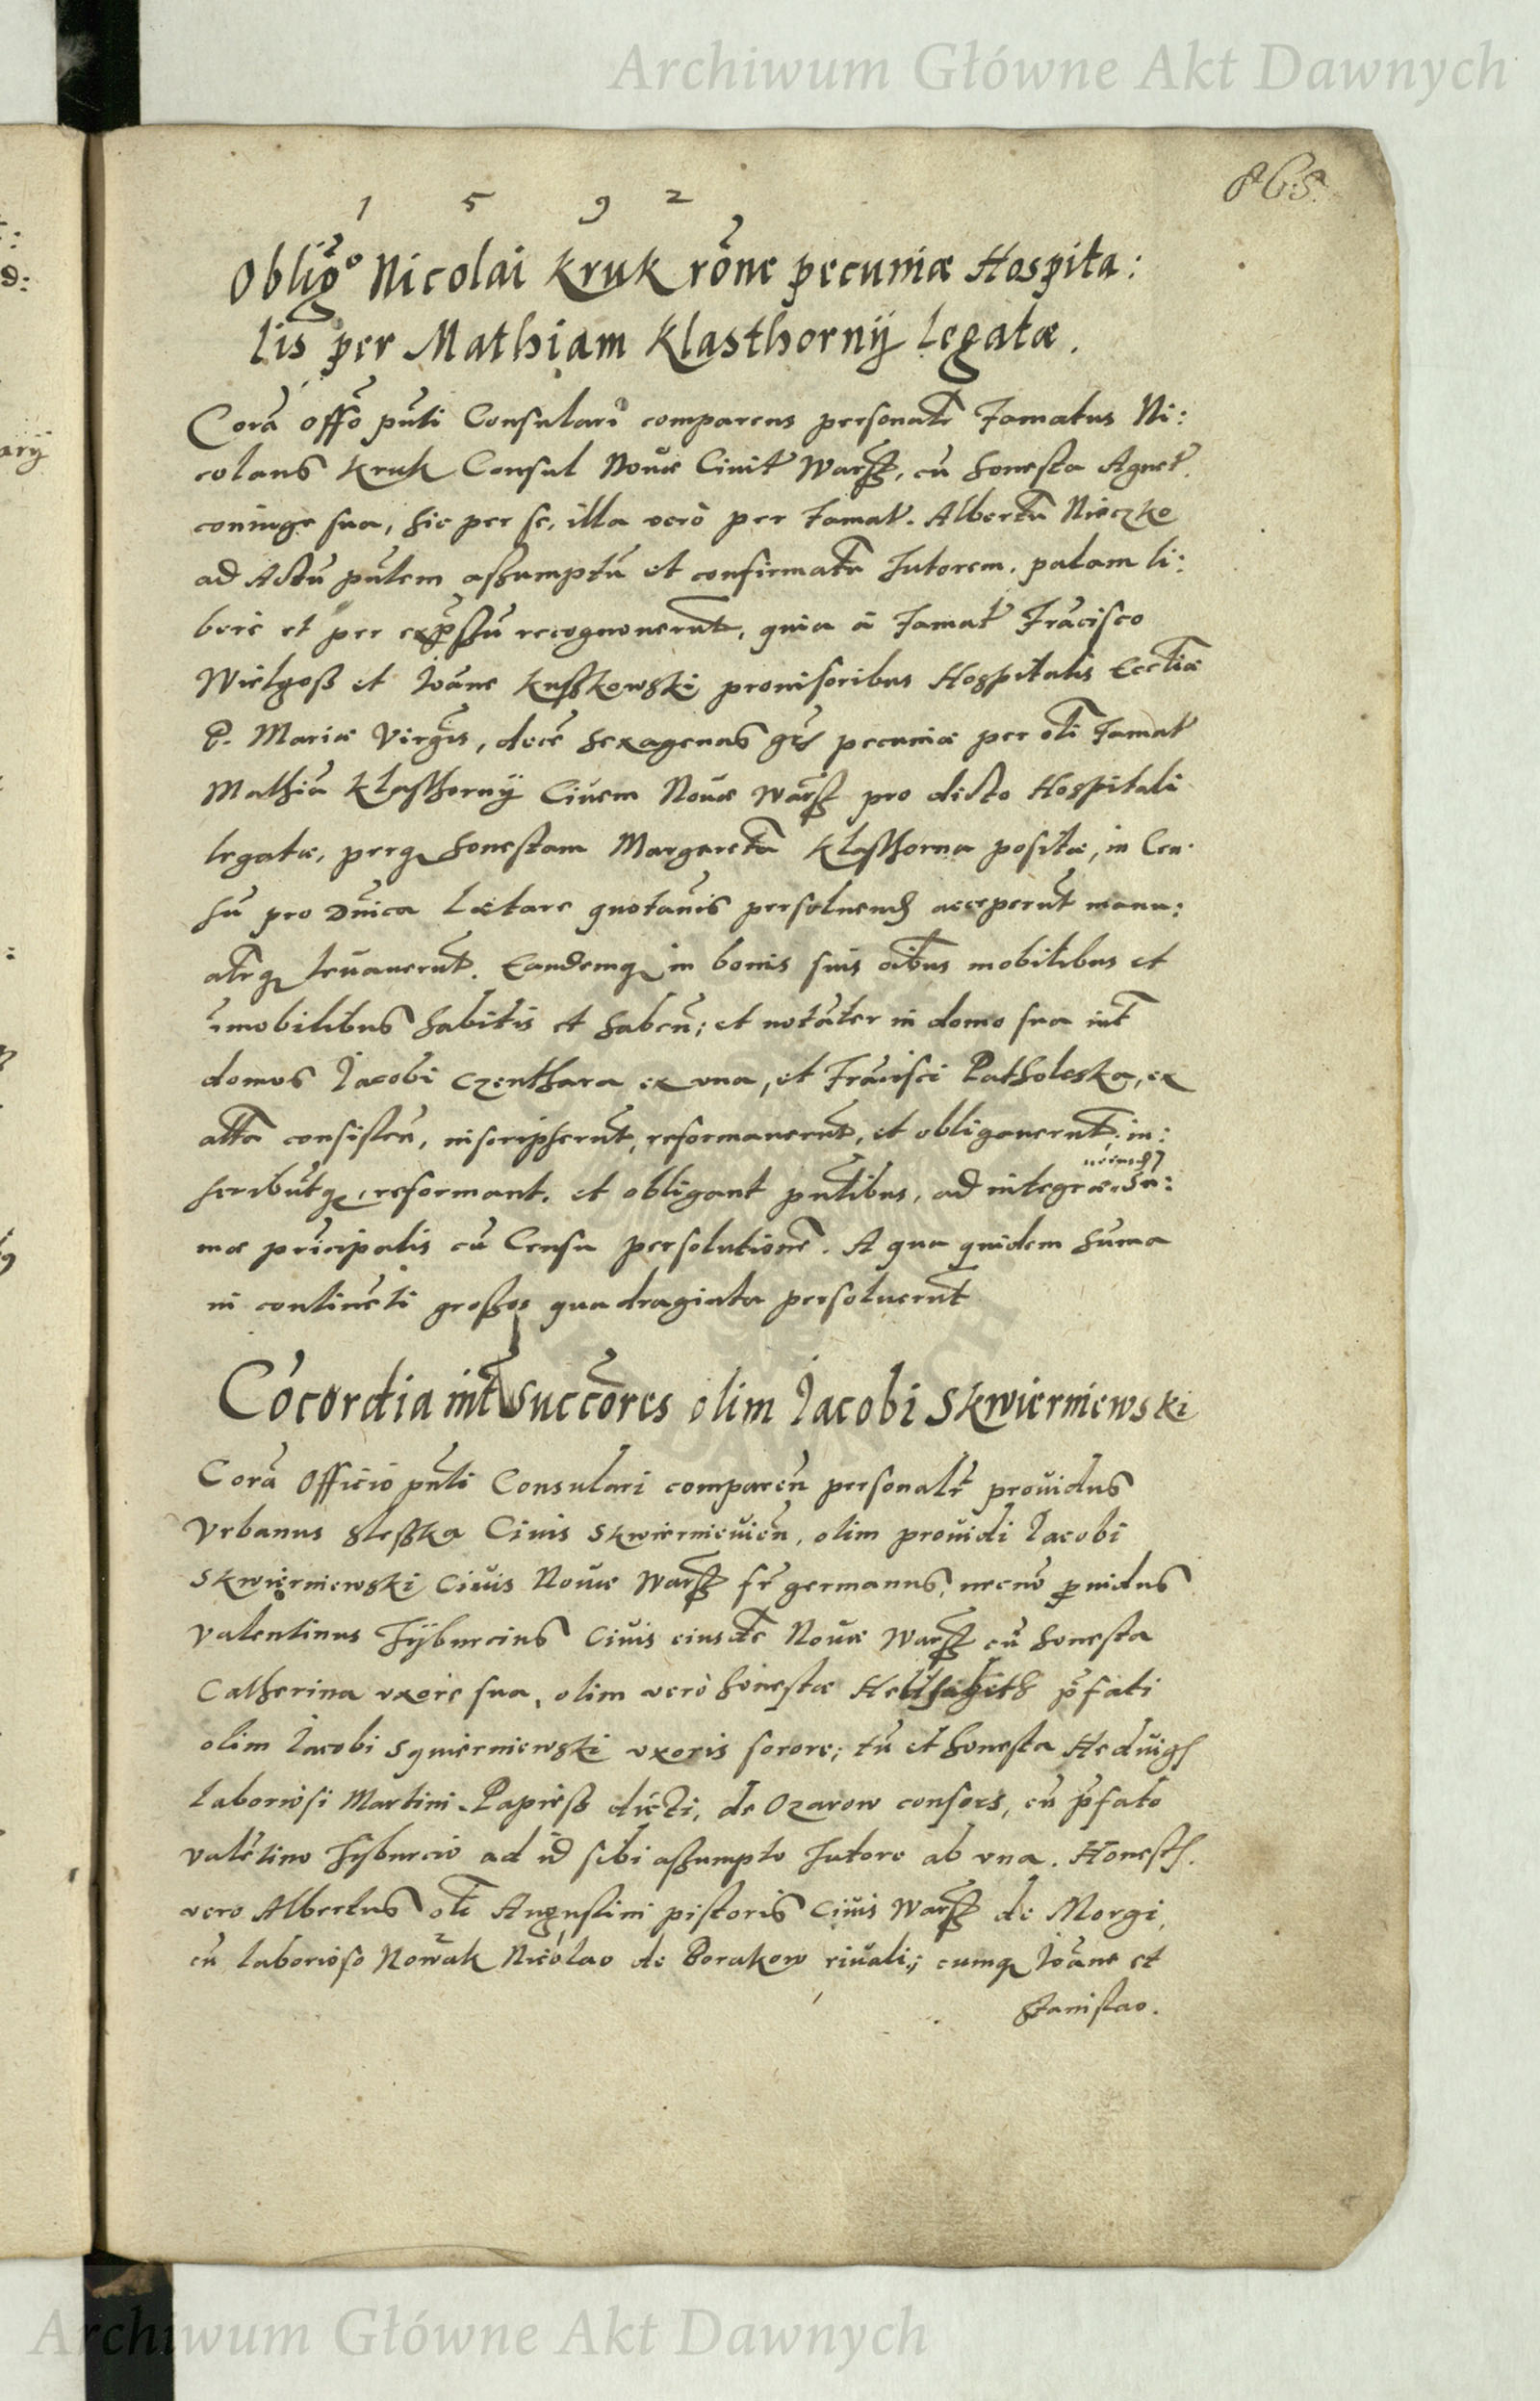 Archiwum Główne Akt Dawnych
868.
1 5 9 2
Obligo Nicolai Kruk rõne pecuniæ Hospita:
lis per Mathiam Klasthornÿ Legatæ.
Corã offõ pñti Consulari comparens personalr̃ Famatus Ni:
colaus Kruk Consul Nouæ Ciuit Warß, cũ honesta Agnet.
coniuge sua, hic per se, illa verò per Famat. Albertũ Nieczko
ad Actũ pñtem aßumptũ et confirmatũ Tutorem. palam li:
berè et per expßũ recognouerũt, quia à Famat Frãcisco
Wielgoß et Ioãne Kußkowski prouisoribus Hospitalis Eccliæ
B. Mariæ Virgĩs, decẽ sexagenas grs pecuniæ per oli Famat
Mathiã Klasthornÿ Ciuem Nouæ Warß pro dicto Hospitali
legatæ, perq honestam Margaretã Klasthorna positæ, in Cen:
su pro Dñica Lætare quotãnis persoluend acceperũt manu:
alrq leuauerũt. Eandemq in bonis suis oĩbus mobilibus et
ĩmobilibus habitis et habeñ; et notãter in domo sua int
domos Iacobi Czenthara ex vna, et Frãcisci Patholeska, ex
alta consisteñ, inscripserũt, reformauerũt, et obligauerũt, in:
scribũtq, reformant, et obligant pñtibus, ad integræ Sũ:
mæ prĩcipalis cũ Censu persolutionẽ. A qua quidem suma
in continẽti großos quadraginta persoluerũt
Cõcordia int Succõres olim Iacobi Skwierniewski
Corã Officio pñti Consulari compareñ personalr̃ prouidus
Vrbanus Sleßka Ciuis Skwiernieuieñ, olim prouidi Iacobi
Skwierniewski Ciuis Nouæ Warß fr germanus, necnõ prouidus
Valentinus Tÿburcius Ciuis eiusdẽ Nouæ Warß cũ honesta
Catherina vxore sua, olim verò honestæ Helisabeth p̃fati
olim Iacobi Sqwierniewski vxoris sorore; tũ et honesta Heduigs
laboriosi Martini Papieß dicti, de Ozarow consors, cũ p̃fato
Valẽtino Tÿburcio ad id sibi aßumpto Tutore ab vna. Honests.
vero Albertus oli Augustini pistoris Ciuis Warß de Morgi,
cũ laborioso Nowak Nicolao de Borakow riuali; cumq Ioãne et
Stanislao.
Archiwum Główne Akt Dawnych